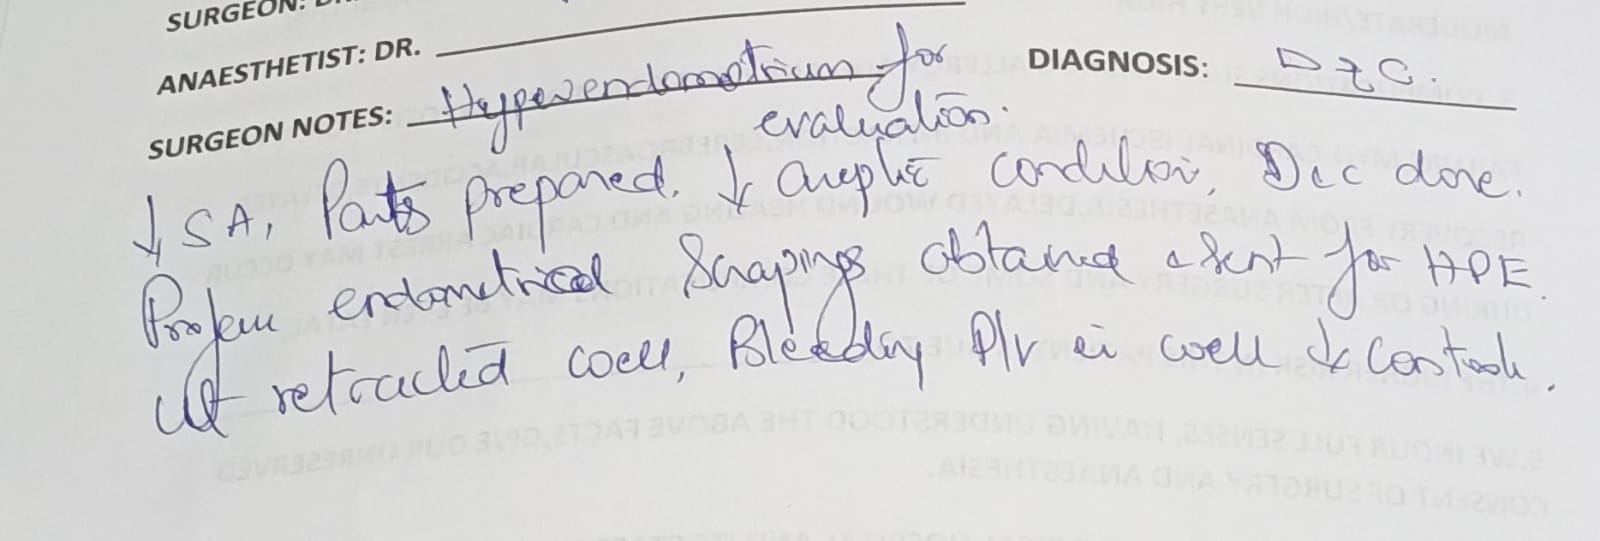 SURGEON:
ANAESTHETIST: DR.
SURGEON NOTES: Hyperendometrium for DIAGNOSIS: D&C.
evaluation.
↓ SA, Parts prepared, ↓ aseptic condition, D&C done.
endometrical Scrapings obtained & sent for HPE.
Ut retracted well, Bleeding P/V is well